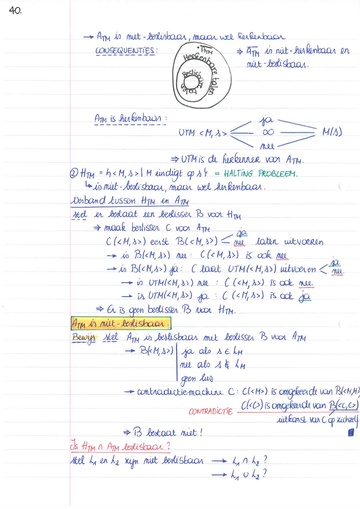 40.
→ A_TM is niet-beslisbaar, maar wel herkenbaar
CONSEQUENTIES:
Herkenbare talen
Beslisbare talen
⇒ A̅_TM is niet-herkenbaar en
niet-beslisbaar.
A_TM is herkenbaar:
UTM <M, s>
ja
∞
nee
M(s)
⇒ UTM is de herkenner voor A_TM.
② H_TM = {<M, s> | M eindigt op s} = HALTING PROBLEEM.
↳ is niet-beslisbaar, maar wel herkenbaar.
Verband tussen H_TM en A_TM
stel er bestaat een beslisser B voor H_TM
⇒ maak beslisser C voor A_TM
C(<M, s>) eerst B(<M, s>) < ja nee laten uitvoeren
→ is B(<M, s>) nee : C(<M, s>) is ook nee
→ is B(<M, s>) ja : C laat UTM(<M, s>) uitvoeren < ja nee
→ is UTM(<M, s>) nee : C(<M, s>) is ook nee
→ is UTM(<M, s>) ja : C(<M, s>) is ook ja
⇒ Er is geen beslisser B voor H_TM.
A_TM is niet-beslisbaar.
Bewijs stel A_TM is beslisbaar met beslisser B voor A_TM
→ B(<M, s>) | ja als s ∈ L_M
nee als s ∉ L_M
geen lus
→ contradictie-machine C : C(<M>) is omgekeerde van B(<M, M>)
CONTRADICTIE C(<C>) is omgekeerde van B(<C, C>)
uitkomst van C op zichzelf
⇒ B bestaat niet!
Is H_TM ∩ A_TM beslisbaar?
stel L₁ en L₂ zijn niet beslisbaar → L₁ ∩ L₂ ?
→ L₁ ∪ L₂ ?